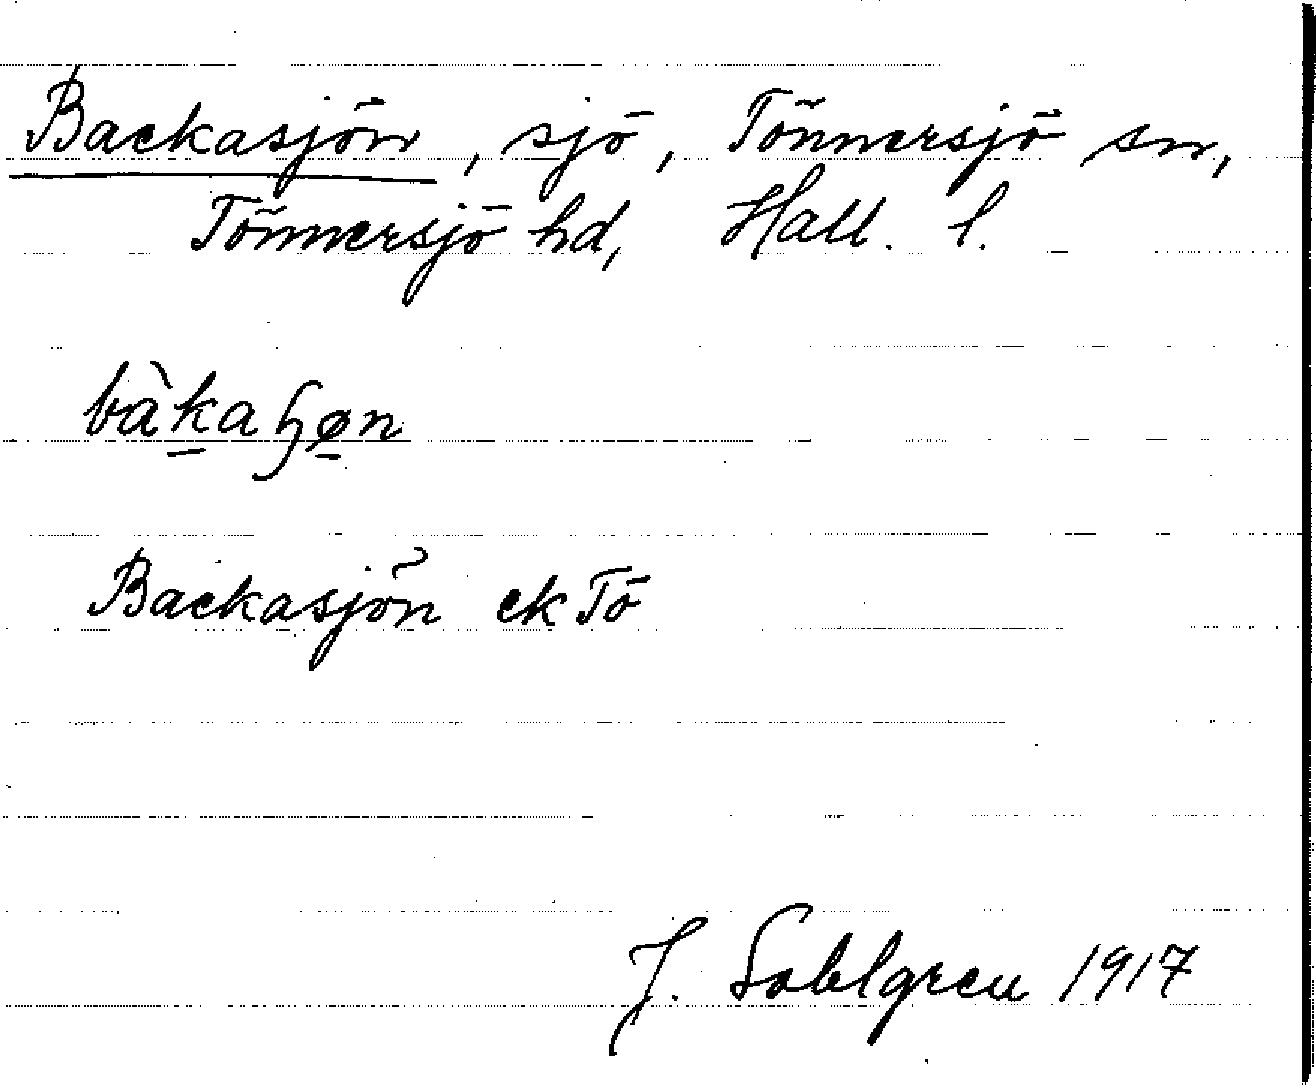 Backasjön, sjö, Tönnersjö sn,
Tönnersjö hd, Hall. l.
bàk̲aɧø̲n
Backasjön ek Tö
J. Sahlgren 1917